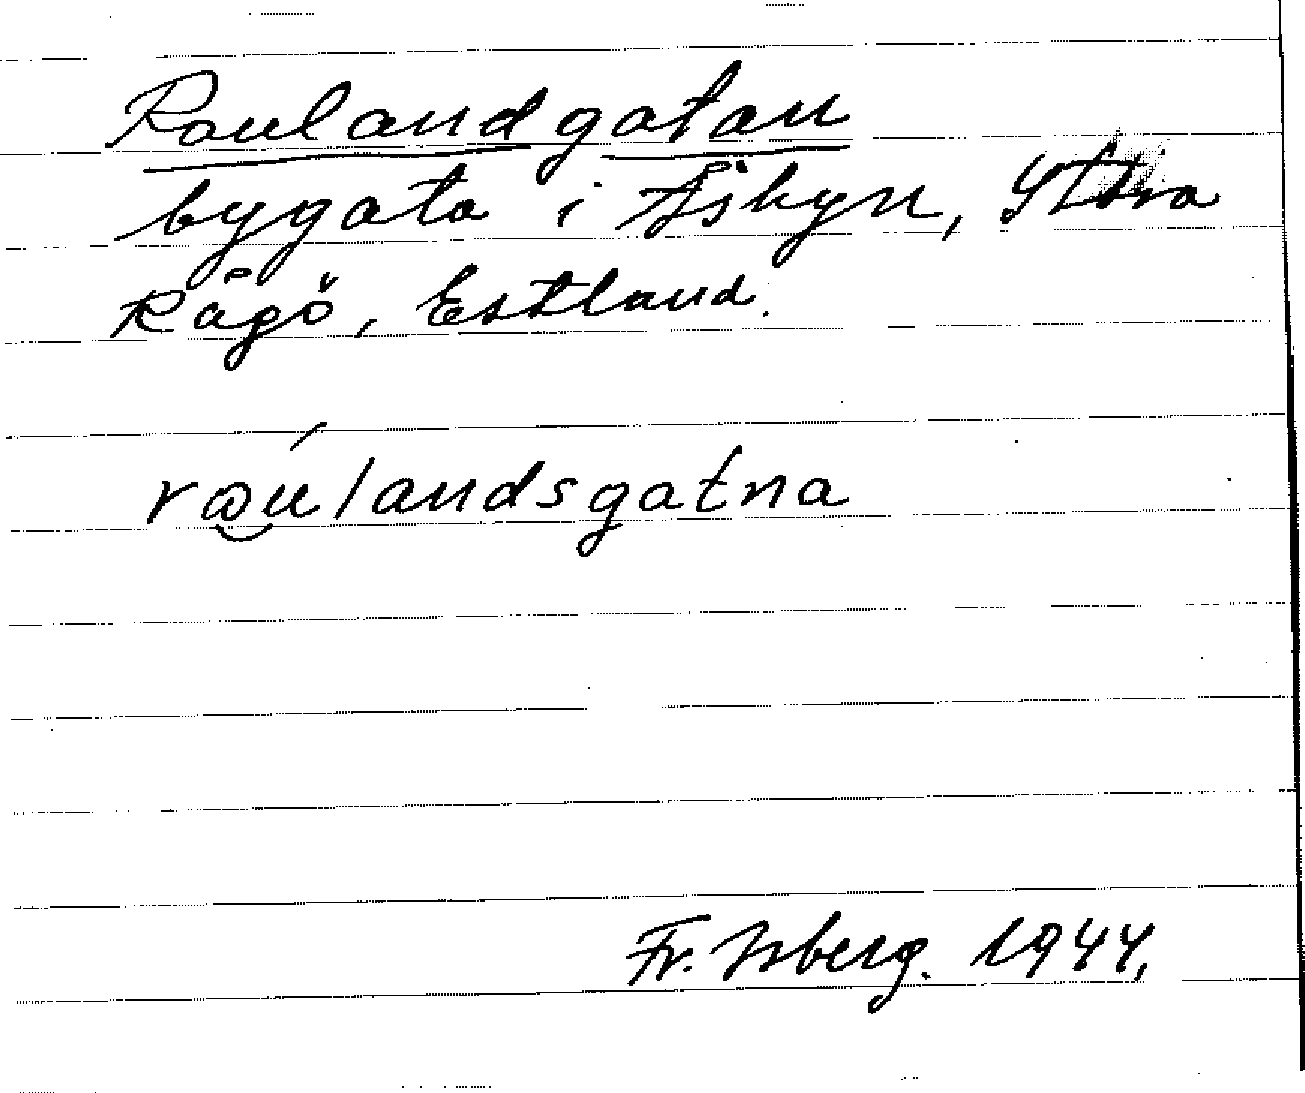 Roulandgatan
bygata i Åsbyn, Stora
Rågö, Estland.
rωu/landsgatna
Fr. Isberg. 1944.